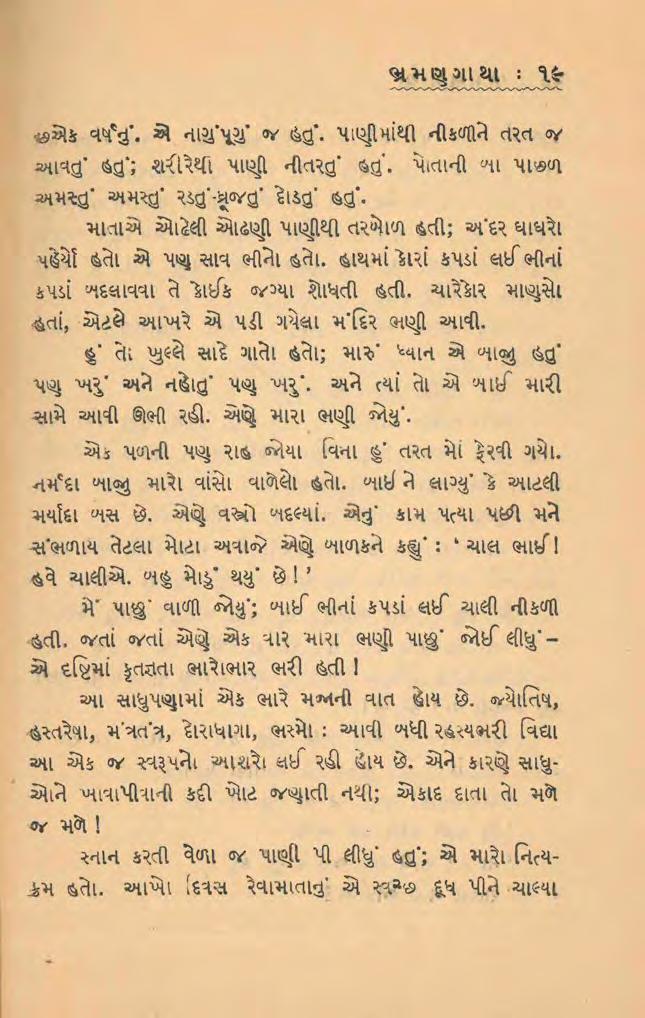 ભ્રમણગાથા : ૧૯
છએક વર્ષનું. એ નાગુંપૂગું જ હતું. પાણીમાંથી નીકળીને તરત જ
આવતું હતું; શરીરેથી પાણી નીતરતું હતું. પોતાની બા પાછળ
અમસ્તું અમસ્તું રડતું-ધ્રૂજતું દોડતું હતું.
માતાએ ઓઢેલી ઓઢણી પાણીથી તરબોળ હતી; અંદર ઘાઘરો
પહેર્યો હતો એ પણ સાવ ભીનો હતો. હાથમાં કોરાં કપડાં લઈ ભીનાં
કપડાં બદલાવવા તે કોઈક જગ્યા શોધતી હતી. ચારેકોર માણસો
હતાં, એટલે આખરે એ પડી ગયેલા મંદિર ભણી આવી.
હું તો ખુલ્લે સાદે ગાતો હતો; મારું ધ્યાન એ બાજુ હતું
પણ ખરું અને નહોતું પણ ખરું. અને ત્યાં તો એ બાઈ મારી
સામે આવી ઊભી રહી. એણે મારા ભણી જોયું.
એક પળની પણ રાહ જોયા વિના હું તરત મોં ફેરવી ગયો.
નર્મદા બાજુ મારો વાંસો વાળેલો હતો. બાઈને લાગ્યું કે આટલી
મર્યાદા બસ છે. એણે વસ્ત્રો બદલ્યાં. એનું કામ પત્યા પછી મને
સંભળાય તેટલા મોટા અવાજે એણે બાળકને કહ્યું : ‘ ચાલ ભાઈ !
હવે ચાલીએ. બહુ મોડું થયું છે ! ’
મેં પાછું વાળી જોયું; બાઈ ભીનાં કપડાં લઈ ચાલી નીકળી
હતી. જતાં જતાં એણે એક વાર મારા ભણી પાછું જોઈ લીધું –
એ દૃષ્ટિમાં કૃતજ્ઞતા ભારોભાર ભરી હતી !
આ સાધુપણામાં એક ભારે મજાની વાત હોય છે. જ્યોતિષ,
હસ્તરેષા, મંત્રતંત્ર, દોરાધાગા, ભસ્મો : આવી બધી રહસ્યભરી વિદ્યા
આ એક જ સ્વરૂપનો આશરો લઈ રહી હોય છે. એને કારણે સાધુ-
ઓને ખાવાપીવાની કદી ખોટ જણાતી નથી; એકાદ દાતા તો મળે
જ મળે !
સ્નાન કરતી વેળા જ પાણી પી લીધું હતું; એ મારો નિત્ય-
ક્રમ હતો. આખો દિવસ રેવામાતાનું એ સ્વચ્છ દૂધ પીને ચાલ્યા